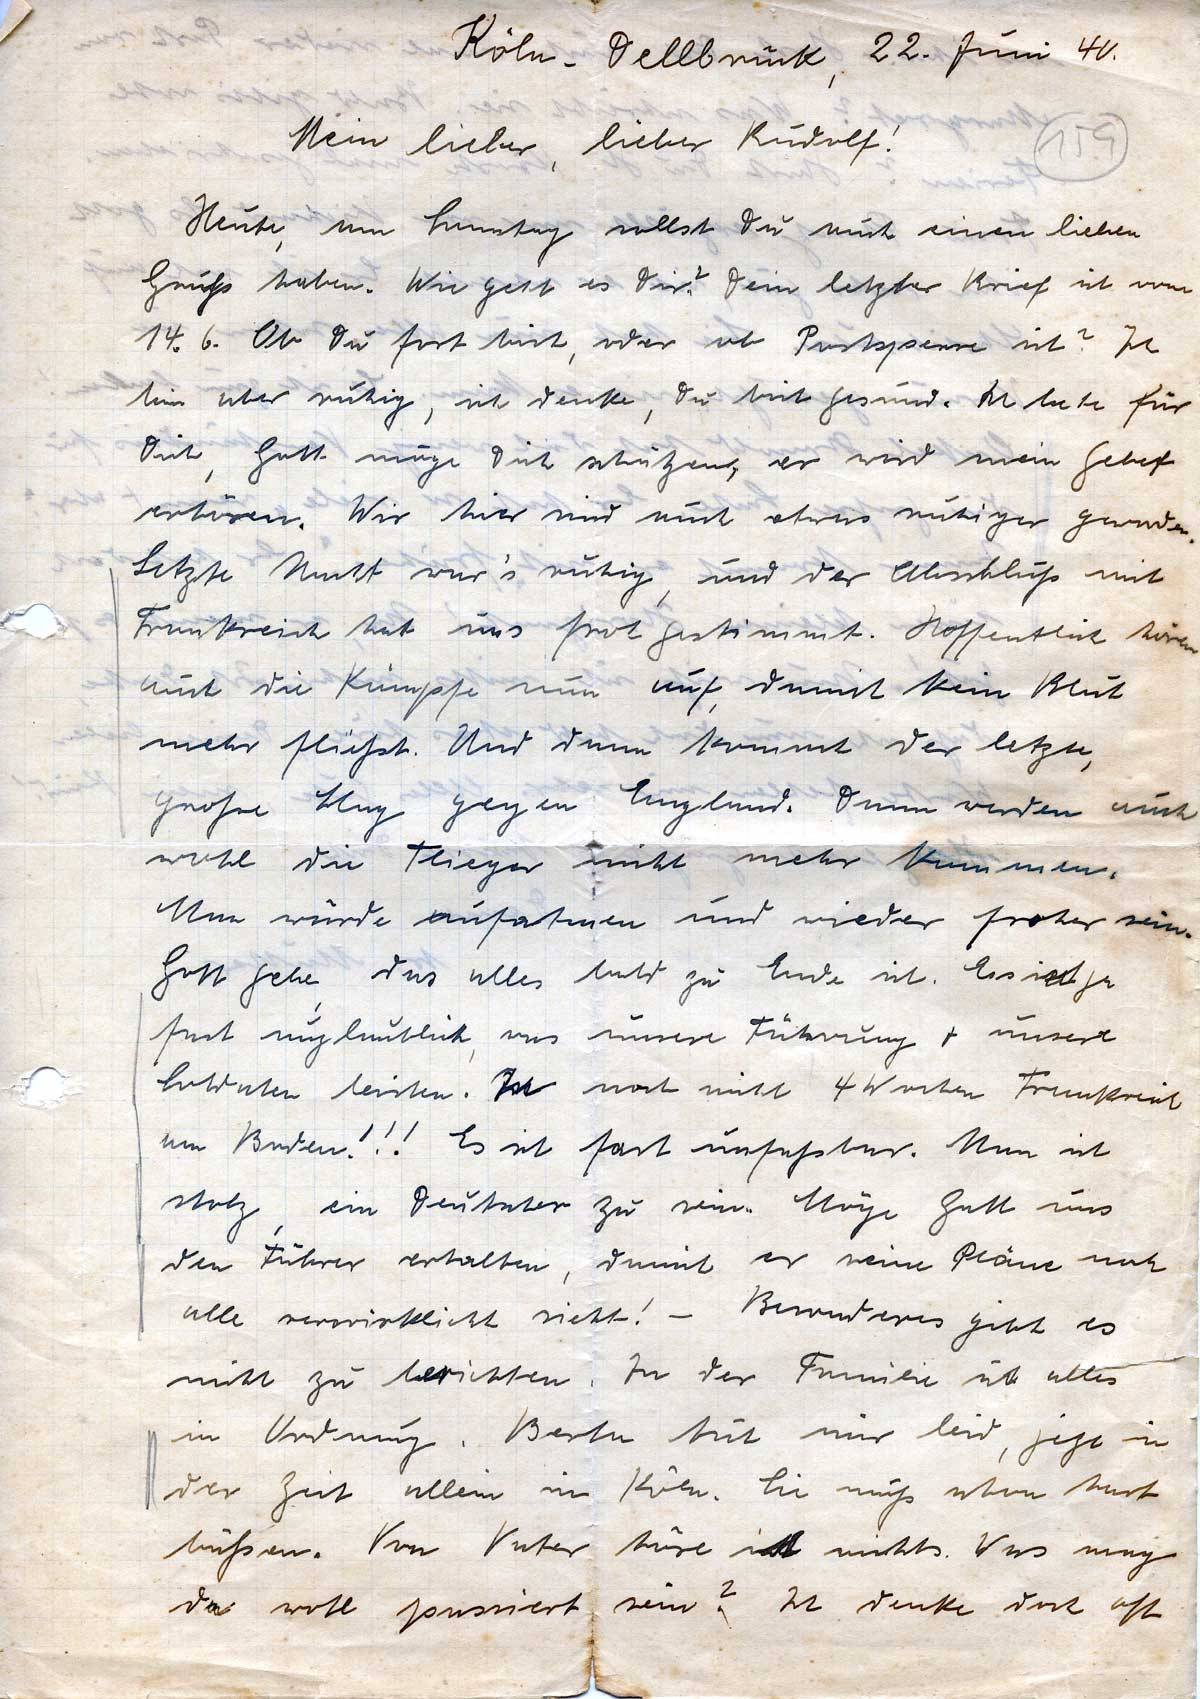 Köln-Dellbrück, 22. Juni 40.
159
Mein lieber, lieber Rudolf!
Heute, am Samstag sollst Du auch einen lieben
Gruß haben. Wie geht es Dir? Dein letzter Brief ist vom
14. 6. Ob Du fort bist, oder ob Postsperre ist? Ich
bin aber ruhig, ich denke, Du bist gesund. Ich bete für
Dich, Gott möge Dich schützen, er wird mein Gebet
erhören. Wir hier sind auch etwas ruhiger geworden.
Letzte Nacht war's ruhig, und der Abschluß mit
Frankreich hat uns froh gestimmt. Hoffentlich hören
auch die Kämpfe nun auf, damit kein Blut
mehr fließt. Und dann kommt der letzte,
große Schlag gegen England. Dann werden auch
wohl die Flieger nicht mehr kommen.
Man würde aufatmen und wieder froher sein.
Gott gebe, das alles bald zu Ende ist. Es ist ja
fast unglaublich, was unsere Führung + unsere
Soldaten leisten. Ist noch nicht 4 Wochen Frankreich
am Boden!!! Es ist fast unfaßbar. Man ist
stolz, ein Deutscher zu sein. Möge Gott uns
den Führer erhalten, damit er seine Pläne noch
alle verwirklicht sieht! – Besonderes gibt es
nicht zu berichten. In der Familie ist alles
in Ordnung. Berta tut mir leid, jetzt in
der Zeit allein in Köln. Sie muß schon hart
büßen. Von Vater höre ich nichts. Was mag
da wohl passiert sein? Ich denke doch oft